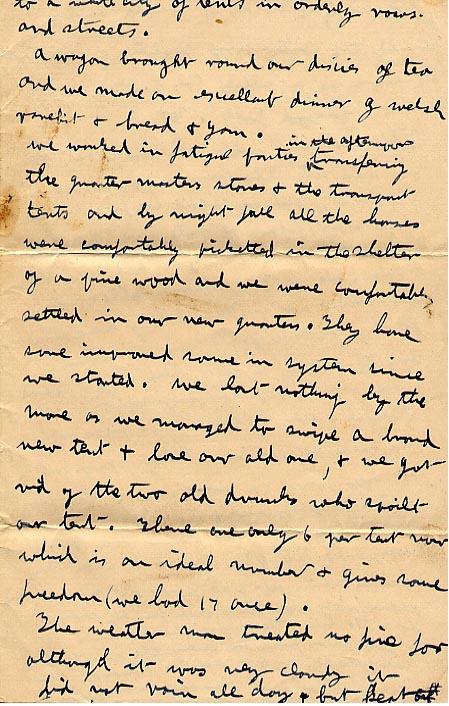 to a whole city of tents in orderly rows.
and streets.
A wagon brought round our dixies of tea
and we made an excellent dinner of welsh
rarebit & bread & jam. in the afternoon
we worked in fatigue parties transferring
the quarter masters stores & the transport
tents and by night fall all the horses
were comfortably picketted in the shelter
of a pine wood and we were comfortably
settled in our new quarters. They have
some improved some in system since
we started. We lost nothing by the
move as we managed to swipe a brand
new tent & lose our old one, & we got
rid of the two old drunks who spoilt
our tent. There are only 6 per tent now
which is an ideal number & gives some
freedom (we had 17 once).
The weather man treated us fine for
although it was very cloudy it
did not rain all day & but kept